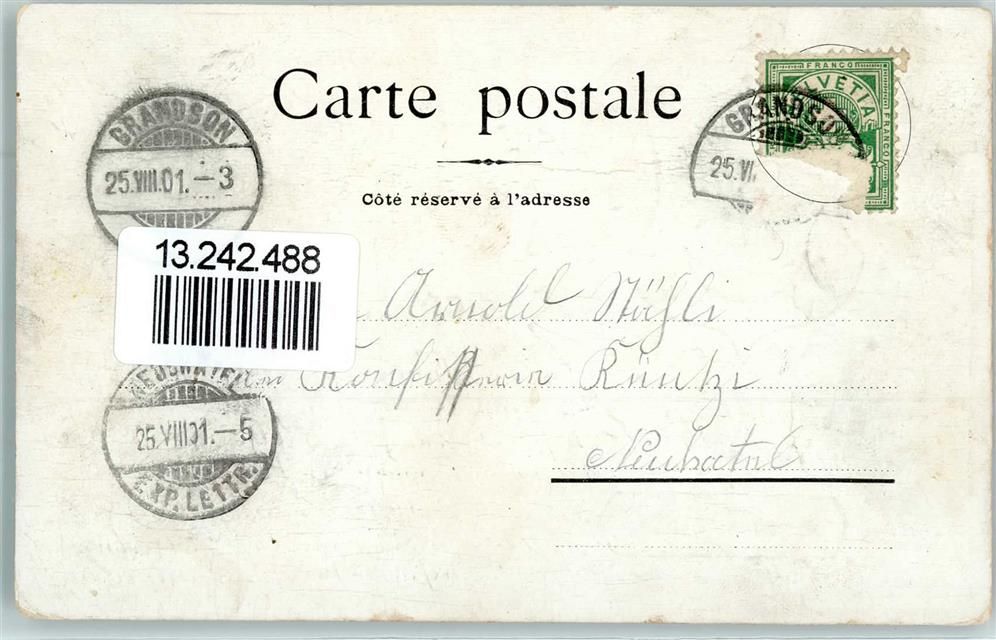 Carte postale
Côté réservé à l'adresse
FRANCO
HELVETIA
FRANCO
GRANDSON
25.VI
GRANDSON
25.VIII.01.-3
13.242.488
Arnold Stähli
Konfisserie Küntzi
Neuchatel
NEUCHATEL
25.VIII 01.-5
EXP. LETTR.